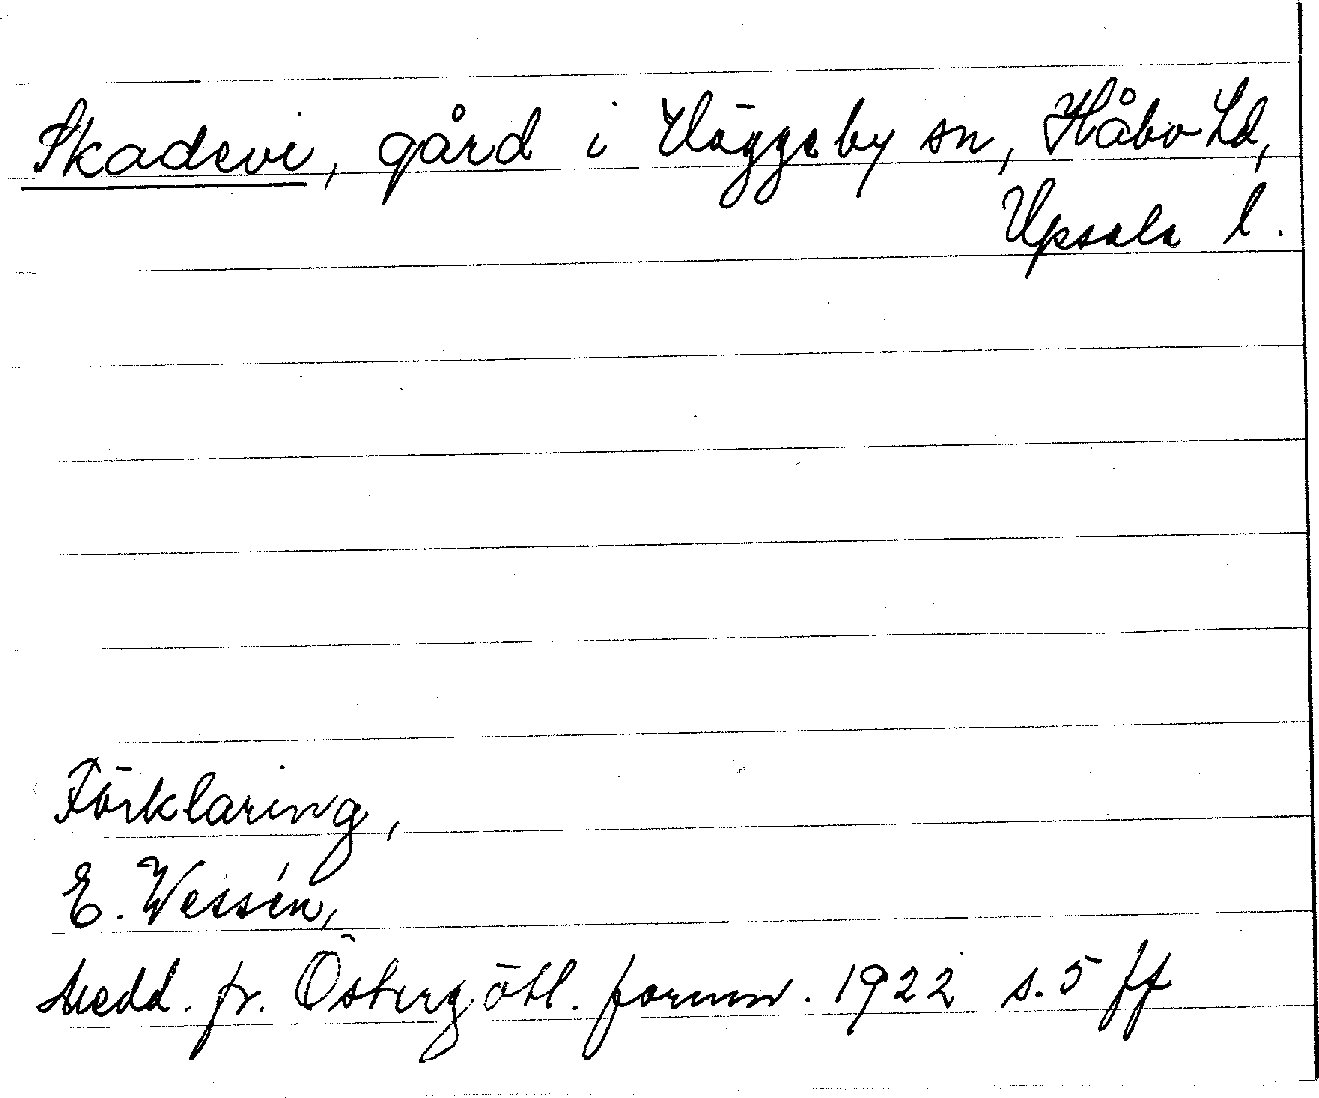 Skadevi, gård i Häggeby sn, Håbo hd,
Upsala l.
Förklaring,
E. Wessén,
Medd. fr. Östergötl. fornm. 1922 s. 5 ff